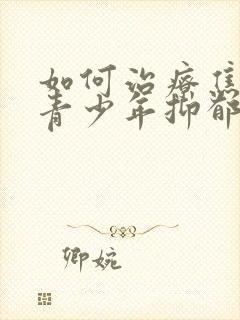 如何治疗焦
青少年抑郁
卿婉